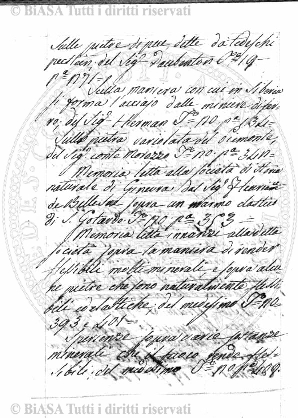 © BIASA Tutti i diritti riservati
Sulle pietre di pece dette da Tedeschi
pechstein, del Sig.r Daubenton T.mo 19-
Sulla maniera con cui in Siberia
si forma l'acciajo dalle miniere di fer-
ro, del Sig.r Herman T.mo 20
Sulla pietra variolata del Piemonte,
del Sig.r conte Morozzo T.mo 20
Memoria letta alla società di storia
naturale di Ginevra dal Sig.r
de Bellevue sopra un marmo elastico
di S. Gotardo T.mo 20 p.a 363 =
Memoria letta innanzi alla detta
società sopra la maniera di render
flessibile molti minerali e sopra alcu-
ne pietre che sono naturalmente flessi-
bili ed elastiche, del medesimo T.mo 20
393 e 401 -
Sperienze sopra varie sostanze
minerali che il fuoco rende flessi-
bili, del medesimo T.mo 20
© BIASA Tutti i diritti riservati